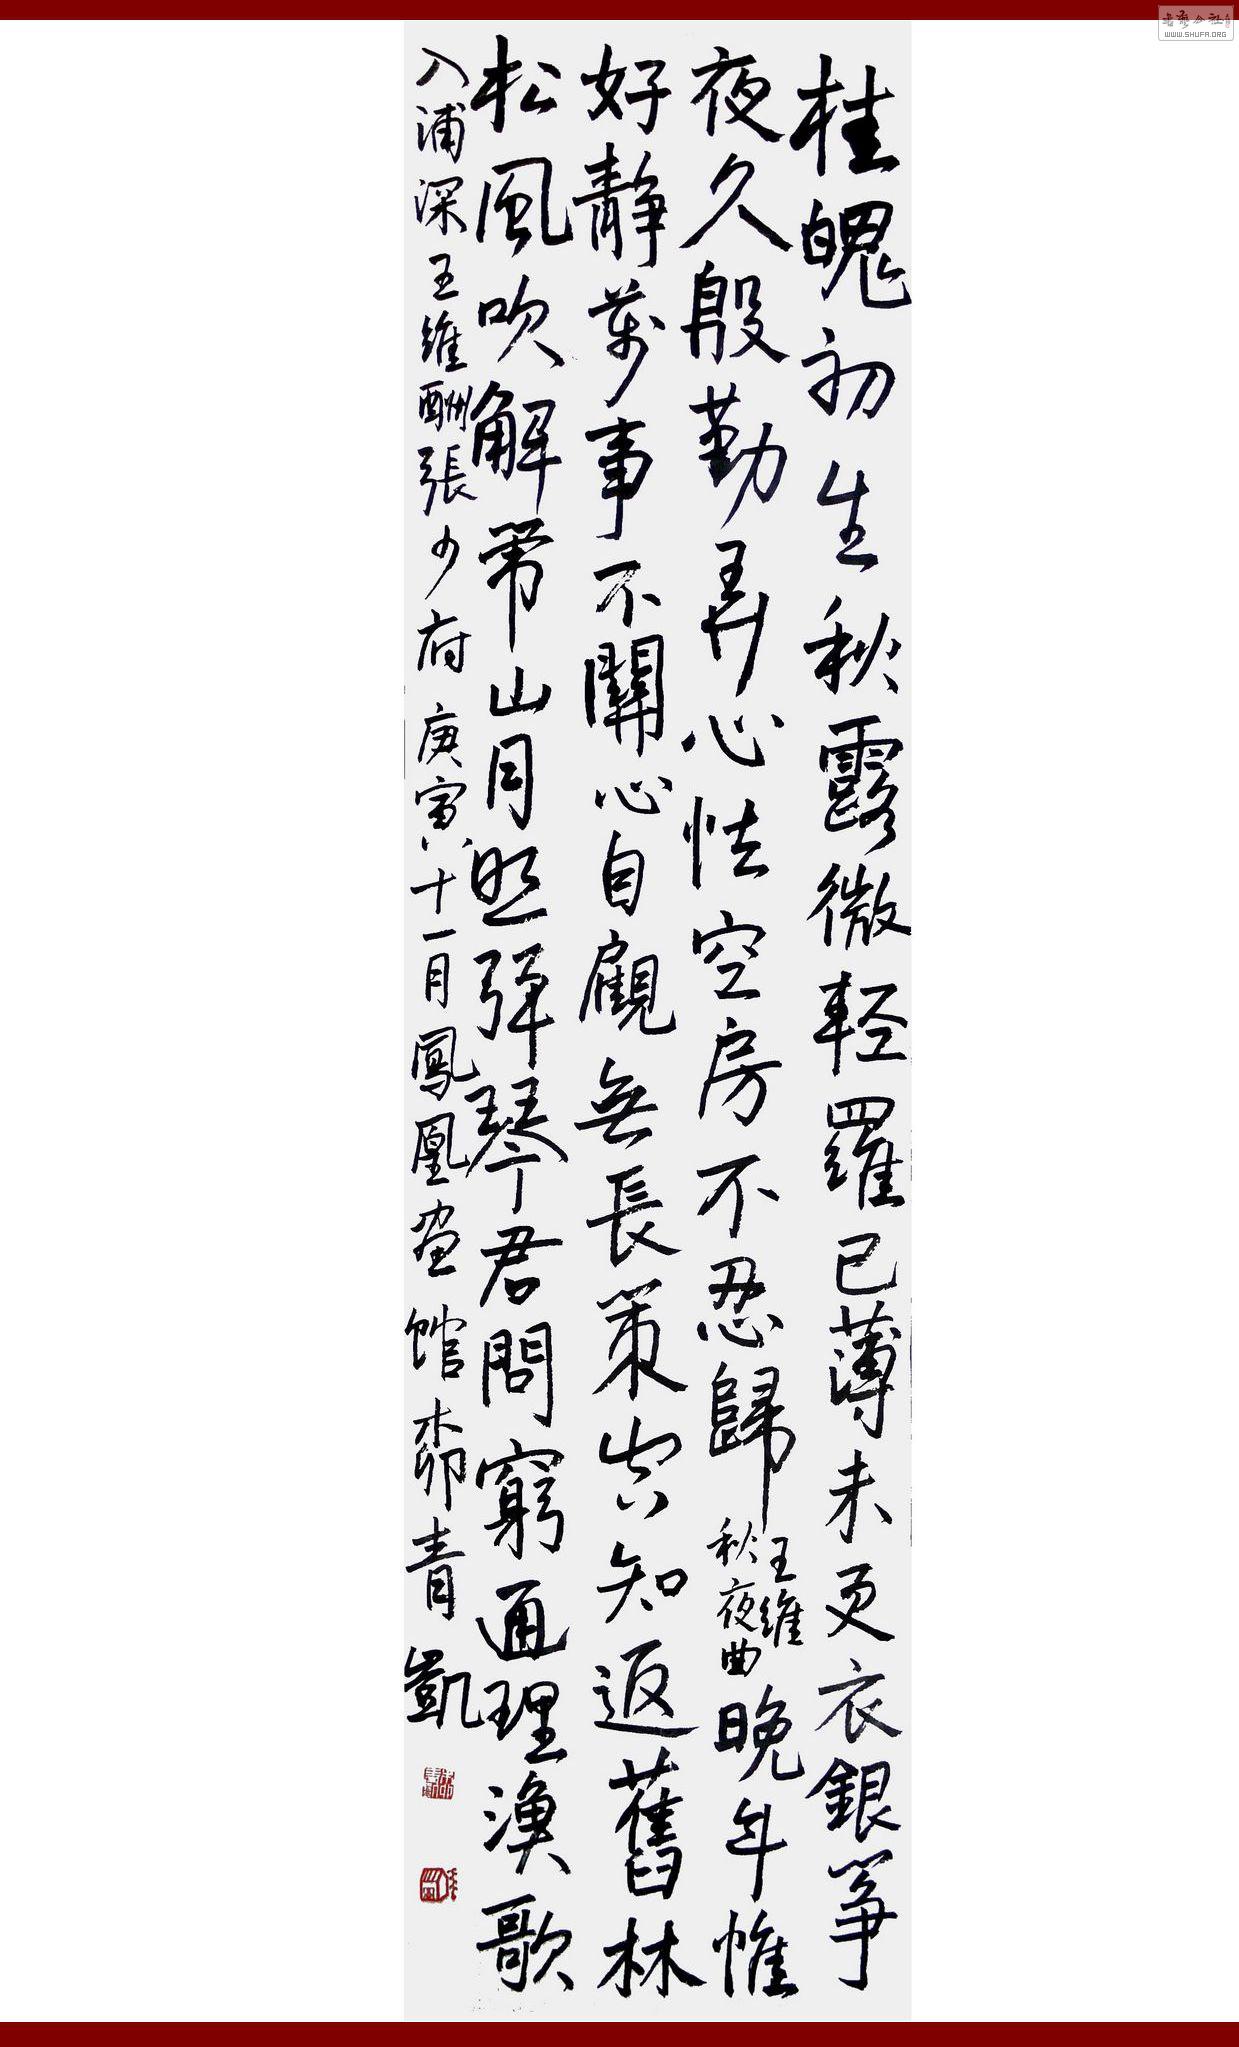 桂魄初生秋露微輕羅已薄未更衣銀箏
夜久殷勤弄心怯空房不忍歸
王維
秋夜曲
晚年惟
好靜萬事不關心自顧無長策空知返舊林
松風吹解帶山月照彈琴君問窮通理漁歌
入浦深王維酬張少府 庚寅十一月鳳凰畫館柳青凱
WWW.SHUFA.ORG